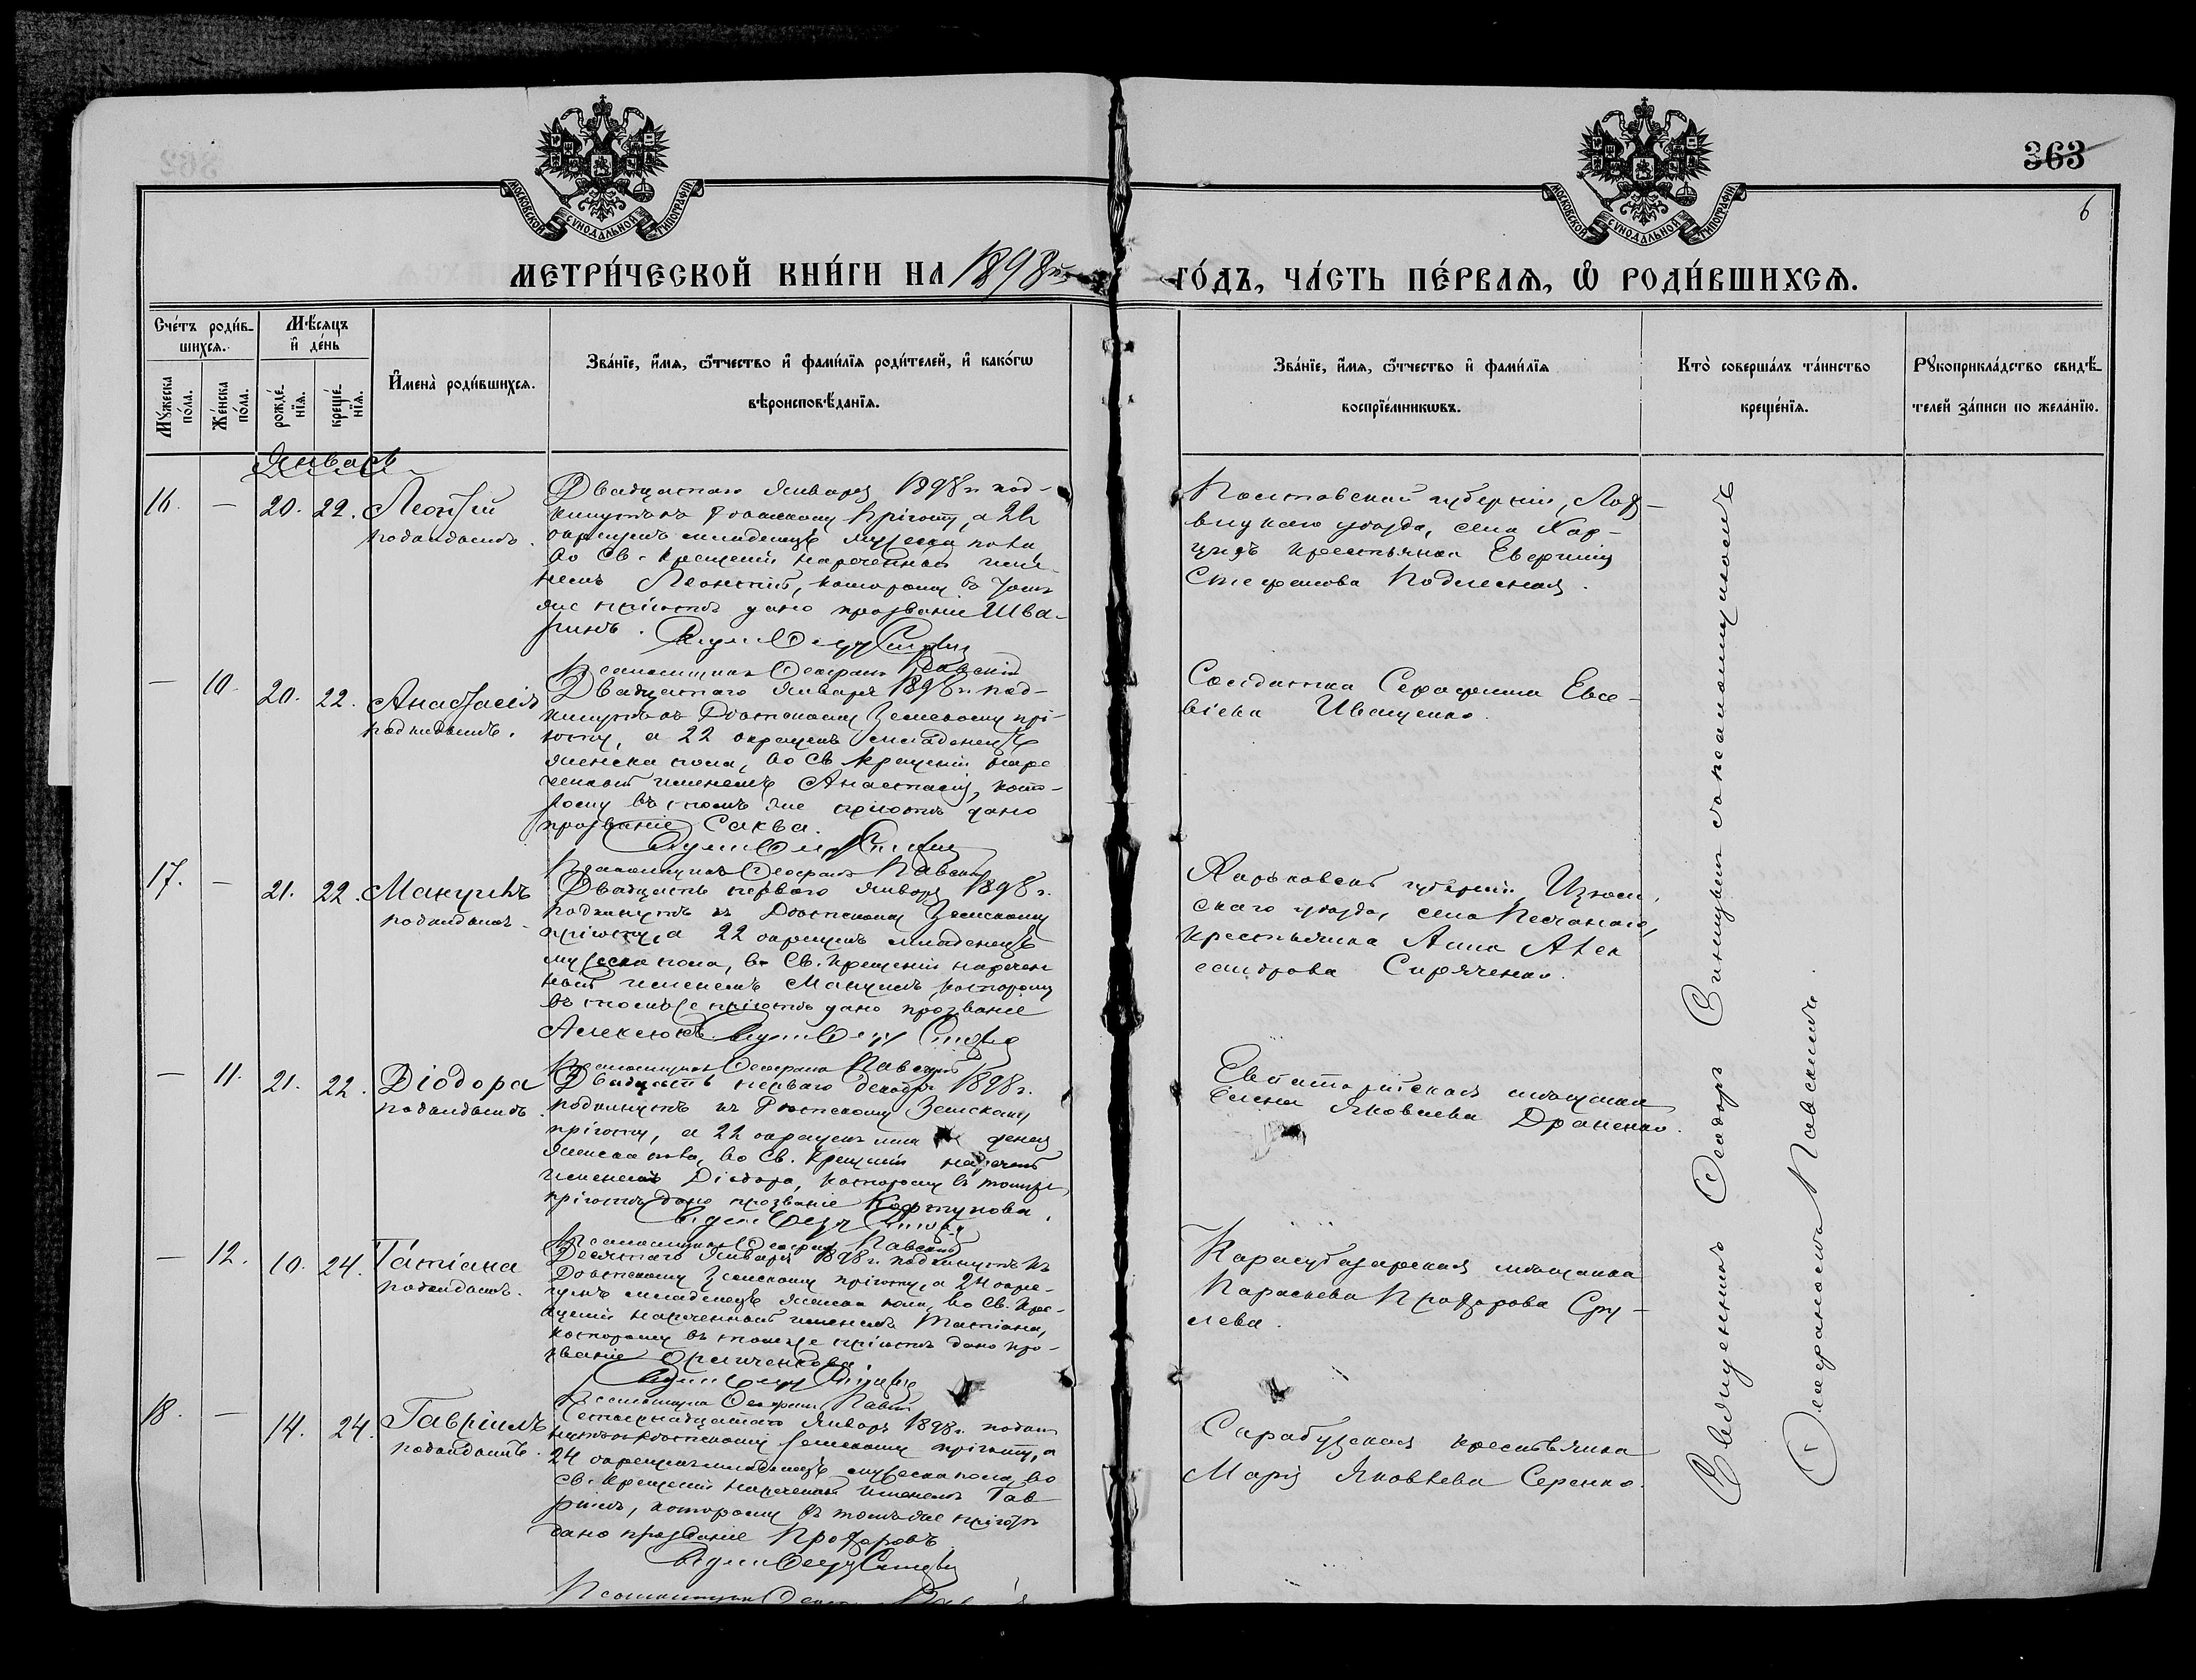 363
6
МОСКОВСКОЙ СѴНОДАЛЬНОЙ ТИПОГРАФІИ
МОСКОВСКОЙ СѴНОДАЛЬНОЙ ТИПОГРАФІИ
МЕТРИ́ЧЕСКОЙ КНИ́ГИ НА 1898й
ГО́ДЪ, ЧА́СТЬ ПЕ́РВАѦ, Ѡ҆ РОДИ́ВШИХСѦ.
Сче́тъ роди́в-
шихсѧ.
Мѣ́сѧцъ
и҆ де́нь
Мꙋ́жеска по́ла.
Же́нска по́ла.
рожде́-нїѧ.
креще́-нїѧ.
И҆мена̀ роди́вшихсѧ.
Зва́нїе, и҆́мѧ, ѻ҆́тчество и҆ фами́лїѧ роди́телей, и҆ како́гѡ
вѣроисповѣ́данїѧ.
Зва́нїе, и҆́мѧ, ѻ҆́тчество и҆ фами́лїѧ
воспрїе́мникѡвъ.
Кто̀ соверша́лъ та́инство
креще́нїѧ.
Рꙋкоприкла́дство свидѣ́-
телей за́писи по жела́нїю.
Январь
16. — 20. 22. Леонтій
подкидышъ.
Двадцатаго Января 1898 г. под-
кинутъ къ Дѣтскому Пріюту, а 22
окрещенъ младенецъ мужеска пола
во Св. Крещеніи нареченный име-
немъ Леонтій, которому въ томъ
же пріютѣ дано прозваніе Шва-
Псаломщикъ Павскій
Полтавской губерніи, Лох-
вицкаго уѣзда, села Хар-
крестьянка
Стефанова Подлесная.
— 10. 20. 22. Анастасія
подкидышъ.
Двадцатаго Января 1898 г. под-
кинутъ къ Дѣтскому Земскому прі-
юту, а 22 окрещенъ младенецъ
женска пола, во Св. Крещеніи наре-
ченный именемъ Анастасія, кото-
рому въ томъ же пріютѣ дано
прозваніе Саква.
Псаломщикъ Павскій
Солдатка Серафима Евсе-
віева Иващенко.
17. — 21. 22. Макушъ
подкидышъ.
Двадцать перваго Января 1898 г.
подкинутъ къ Дѣтскому Земскому
пріюту, а 22 окрещенъ младенецъ
мужеска пола, во Св. Крещеніи наречен-
ный именемъ которому
въ томъ же пріютѣ дано прозваніе
Алексюкъ.
Псаломщикъ Павскій
Харьковской губерніи, Изюм-
скаго уѣзда, села Песчанаго,
крестьянка Анна Алек-
сандрова
— 11. 21. 22. Діодора
подкидышъ.
Двадцать перваго декабря 1898 г.
подкинутъ къ Дѣтскому Земскому
пріюту, а 22 окрещенъ мла денец
женска пола, во Св. Крещеніи нареченъ
именемъ Діодора, которому въ томъ же
пріютѣ дано прозваніе Кофтунова.
Псаломщикъ Павскій
Евпаторійская мѣщанка
Елена Яковлева Драненко.
— 12. 10. 24. Татіана
подкидышъ.
Десятаго Января 1898 г. подкинутъ къ
Дѣтскому Земскому пріюту, а 24 окре-
щенъ младенецъ женска пола, во Св. Кре-
щеніи нареченный именемъ Татіана,
которому въ томъ же пріютѣ дано про-
званіе
Псаломщикъ Павскій
Карасубазарская мѣщанка
Параскева Прохорова Сру-
лева.
18. — 14. 24. Гавріилъ
подкидышъ.
Четырнадцатаго Января 1898 г. подки-
нутъ къ Дѣтскому Земскому пріюту, а
24 окрещенъ младенецъ мужеска пола, во
Св. Крещеніи нареченный именемъ Гав-
ріилъ, которому въ томъ же пріютѣ
дано прозваніе Прохоровъ.
Псаломщикъ
Сарабузская крестьянка
Марія Яковлева Серенко.
Священникъ Ѳеодоръ съ псаломщикомъ
Павскимъ.